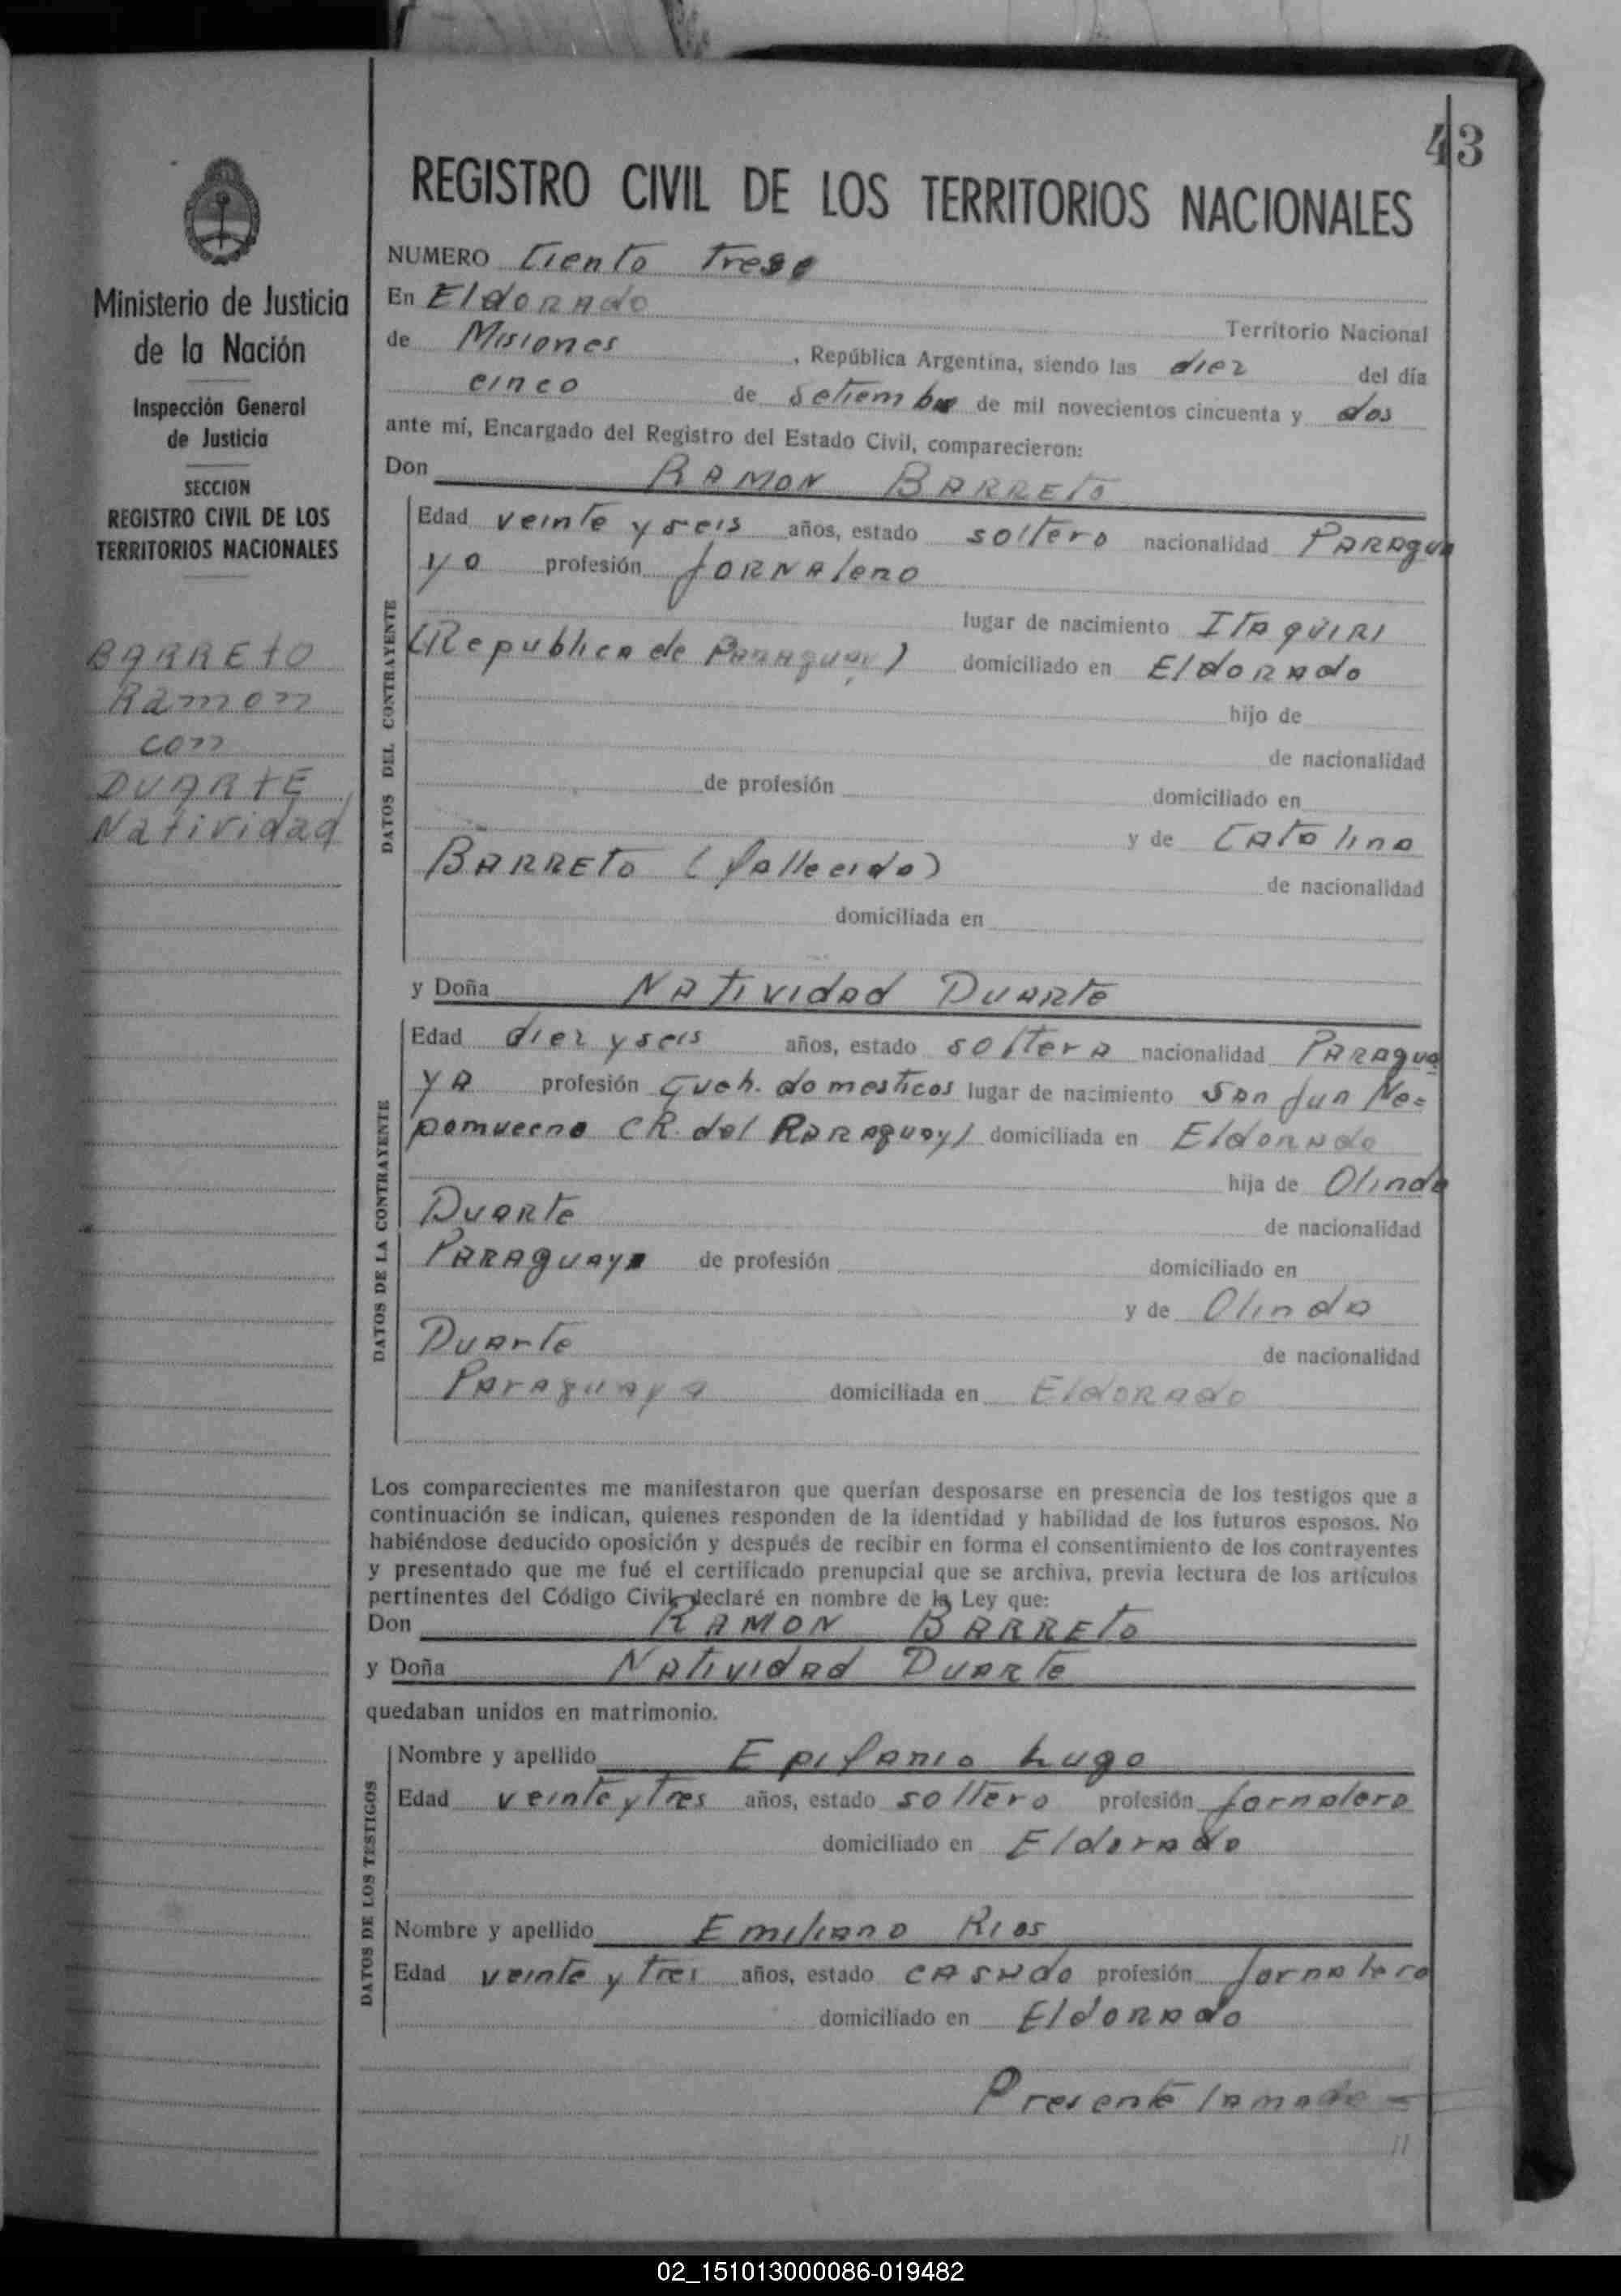 43
REGISTRO CIVIL DE LOS TERRITORIOS NACIONALES
Ministerio de Justicia
de la Nación
Inspección General
de Justicia
SECCION
REGISTRO CIVIL DE LOS
TERRITORIOS NACIONALES
BARREtO
Ramon
con
DUARtE
Natividad
NUMERO Ciento Trese
En Eldorado
Territorio Nacional
de Misiones, República Argentina, siendo las diez del día
cinco de Setiembre de mil novecientos cincuenta y dos
ante mí, Encargado del Registro del Estado Civil, comparecieron:
Don RAMON BARRETO
DATOS DEL CONTRAYENTE
Edad veinte y seis años, estado soltero nacionalidad Paragua
yo profesión Jornalero
lugar de nacimiento Itaquiri
(Republica de Paraguay) domiciliado en Eldorado
hijo de
de nacionalidad
de profesión domiciliado en
y de Catalina
Barreto (fallecida)
de nacionalidad
domiciliada en
y Doña Natividad Duarte
DATOS DE LA CONTRAYENTE
Edad diez y seis años, estado soltera nacionalidad Paragua
ya profesión Queh. domesticos lugar de nacimiento San Jua Ne=
pomuceno (R. del Paraguay) domiciliada en Eldorado
hija de Olinda
Duarte
de nacionalidad
Paraguaya de profesión domiciliado en
y de Olinda
Duarte
de nacionalidad
Paraguaya domiciliada en Eldorado
Los comparecientes me manifestaron que querían desposarse en presencia de los testigos que a
continuación se indican, quienes responden de la identidad y habilidad de los futuros esposos. No
habiéndose deducido oposición y después de recibir en forma el consentimiento de los contrayentes
y presentado que me fué el certificado prenupcial que se archiva, previa lectura de los artículos
pertinentes del Código Civil, declaré en nombre de la Ley que:
Don RAMON BARRETO
y Doña Natividad Duarte
quedaban unidos en matrimonio.
DATOS DE LOS TESTIGOS
Nombre y apellido Epifanio Lugo
Edad veinte y tres años, estado soltero profesión Jornalero
domiciliado en Eldorado
Nombre y apellido Emiliano Rios
Edad veinte y tres años, estado casado profesión Jornalero
domiciliado en Eldorado
Presente la made =
//
02_151013000086-019482